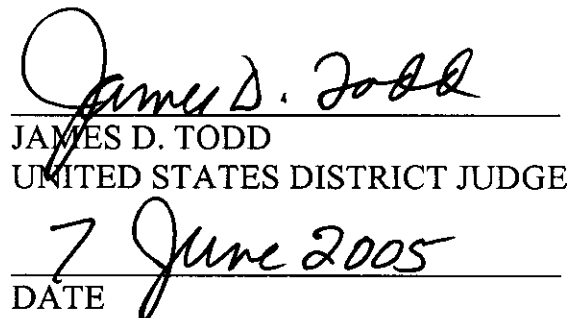 James D. Todd
JAMES D. TODD
UNITED STATES DISTRICT JUDGE
7 June 2005
DATE